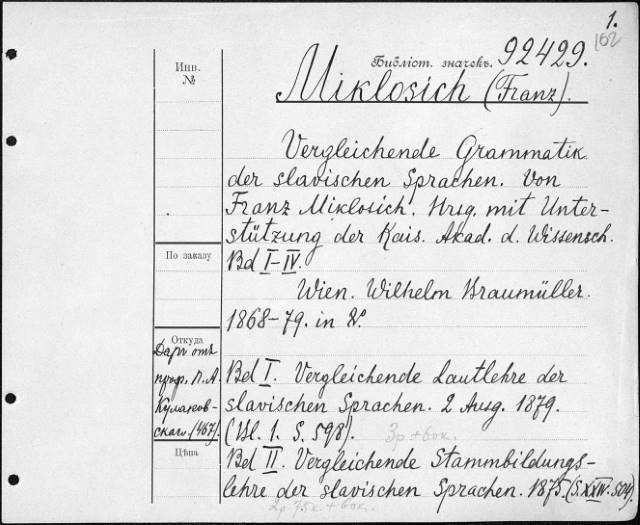 1.
102
Библіот. значекъ. 92429.
Инв.
№
Miklosich (Franz).
Vergleichende Grammatik
der slavischen Sprachen. Von
Franz Miklosich. Hrsg. mit Unter-
stützung der Kais. Akad. d. Wissensch.
Bd I-IV.
По заказу
Wien. Wilhelm Braumüller.
1868-79. in 8°.
Откуда
Даръ отъ
проф. П. А.
Кулаков-
скаго. (467).
Bd I. Vergleichende Lautlehre der
slavischen Sprachen. 2 Ausg. 1879.
(Bl. 1. S. 598). 3р + 60к.
Цѣна
Bd II. Vergleichende Stammbildungs-
lehre der slavischen Sprachen. 1875. (S. XXIV. 504).
2р 75к. + 60к.